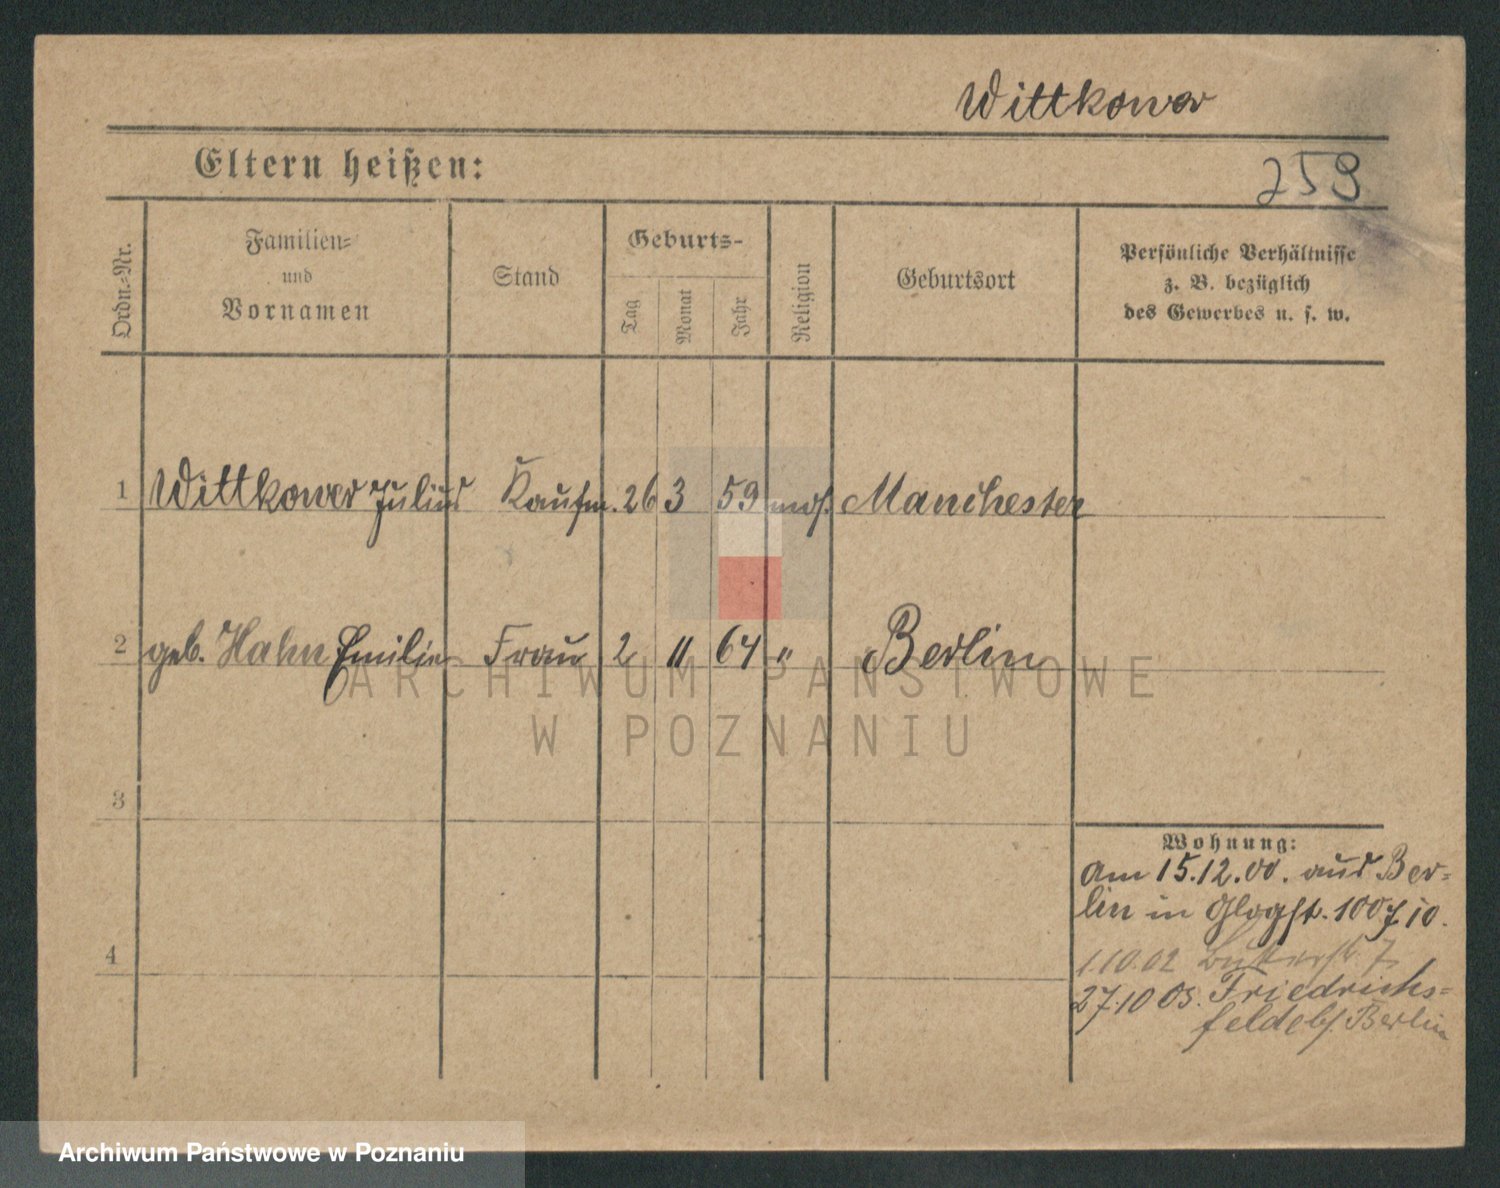 Wittkower
Eltern heißen:
259
Ordn.-Nr.
Familien-
und
Vornamen
Stand
Geburts-
Tag
Monat
Jahr
Religion
Geburtsort
Persönliche Verhältnisse
z. B. bezüglich
des Gewerbes u. s. w.
1 Wittkower Julius Kaufm. 26 3 59 mos. Manchester
2 geb. Hahn Emilie Frau 2 " 64 " Berlin
ARCHIWUM PAŃSTWOWE
W POZNANIU
3
Wohnung:
am 15.12.00. aus Ber-
lin in Glogst. 100 z. 10.
4
1.10.02 7
27.10 03. Friedrichs-
felde b/ Berlin
Archiwum Państwowe w Poznaniu